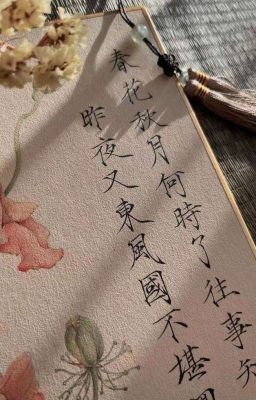 春花秋月何時了往事
昨夜又東風國不堪